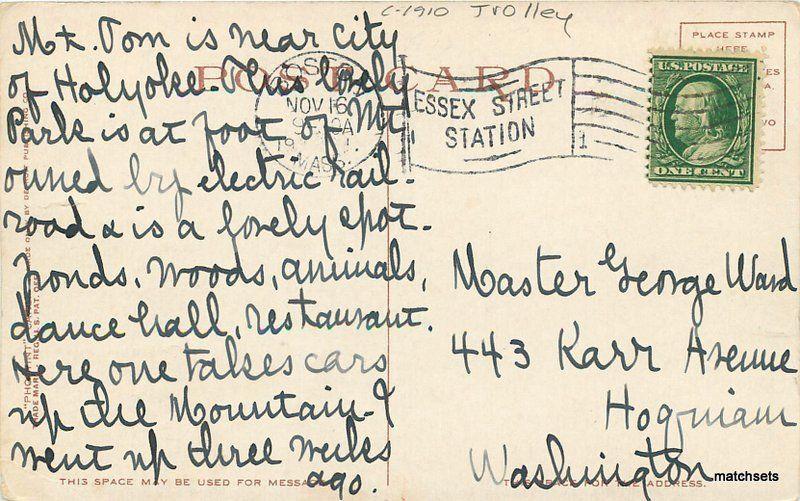 C-1910 Trolley
Mt. Tom is near city
of Holyoke. This lovely
Park is at foot of Mt
owned by electric rail-
road & is a lovely spot.
Ponds, woods, animals,
dance hall, restaurant.
Here one takes cars
up the Mountain. I
went up three weeks
ago.
POST CARD
NOV 16
MASS.
ESSEX STREET
STATION
1
PLACE STAMP
HERE
U.S. POSTAGE
ONE CENT
Master George Ward
443 Karr Avenue
Hoquiam
Washington
THIS SPACE MAY BE USED FOR MESSAGE
THIS SPACE FOR THE ADDRESS.
matchsets